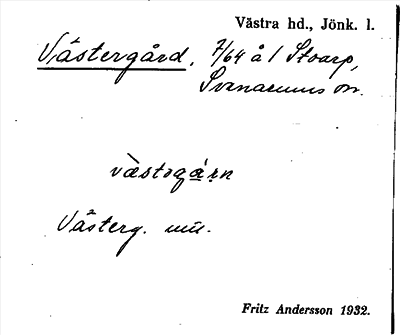 Västra hd., Jönk. l.
Västergård, 7/64 å 1 Stoarp,
Svenarums sn.
västəgárn
Västerg.
Fritz Andersson 1932.